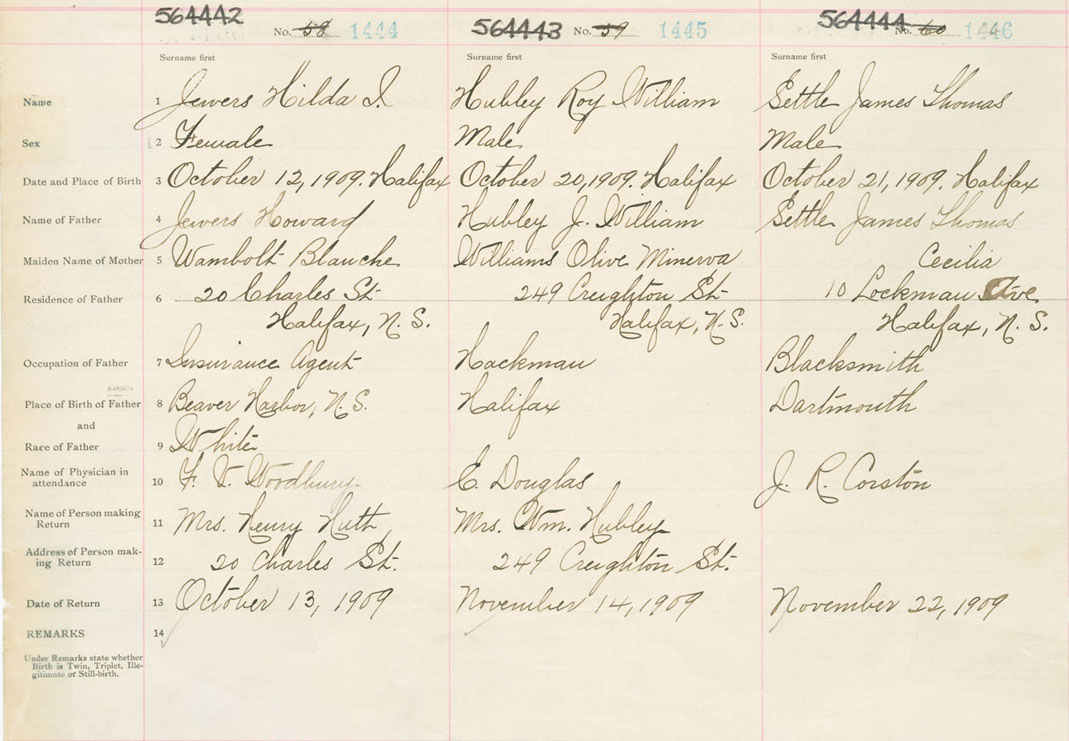 564442 No. 58 1444 564443 No. 59 1445 564444 No. 60 1446
Surname first Surname first Surname first
Name 1 Jewers Hilda I. Hubley Roy William Settle James Thomas
Sex 2 Female Male Male
Date and Place of Birth 3 October 12, 1909. Halifax October 20, 1909. Halifax October 21, 1909. Halifax
Name of Father 4 Jewers Howard Hubley J. William Settle James Thomas
Maiden Name of Mother 5 Wambolt Blanche Williams Olive Minerva Cecilia
Residence of Father 6 20 Charles St. 249 Creighton St. 10 Lockman Ave.
Halifax, N. S. Halifax, N. S. Halifax, N. S.
Occupation of Father 7 Insurance Agent Hackman Blacksmith
Place of Birth of Father 8 Beaver Harbor, N. S. Halifax Dartmouth
and
Race of Father 9 White
Name of Physician in
attendance 10 F. V. Woodbury E. Douglas J. R. Corston
Name of Person making
Return 11 Mrs. Henry Huth Mrs. Wm. Hubley
Address of Person mak-
ing Return 12 20 Charles St. 249 Creighton St.
Date of Return 13 October 13, 1909 November 14, 1909 November 22, 1909
REMARKS 14
Under Remarks state whether
Birth is Twin, Triplet, Ille-
gitimate or Still-birth.